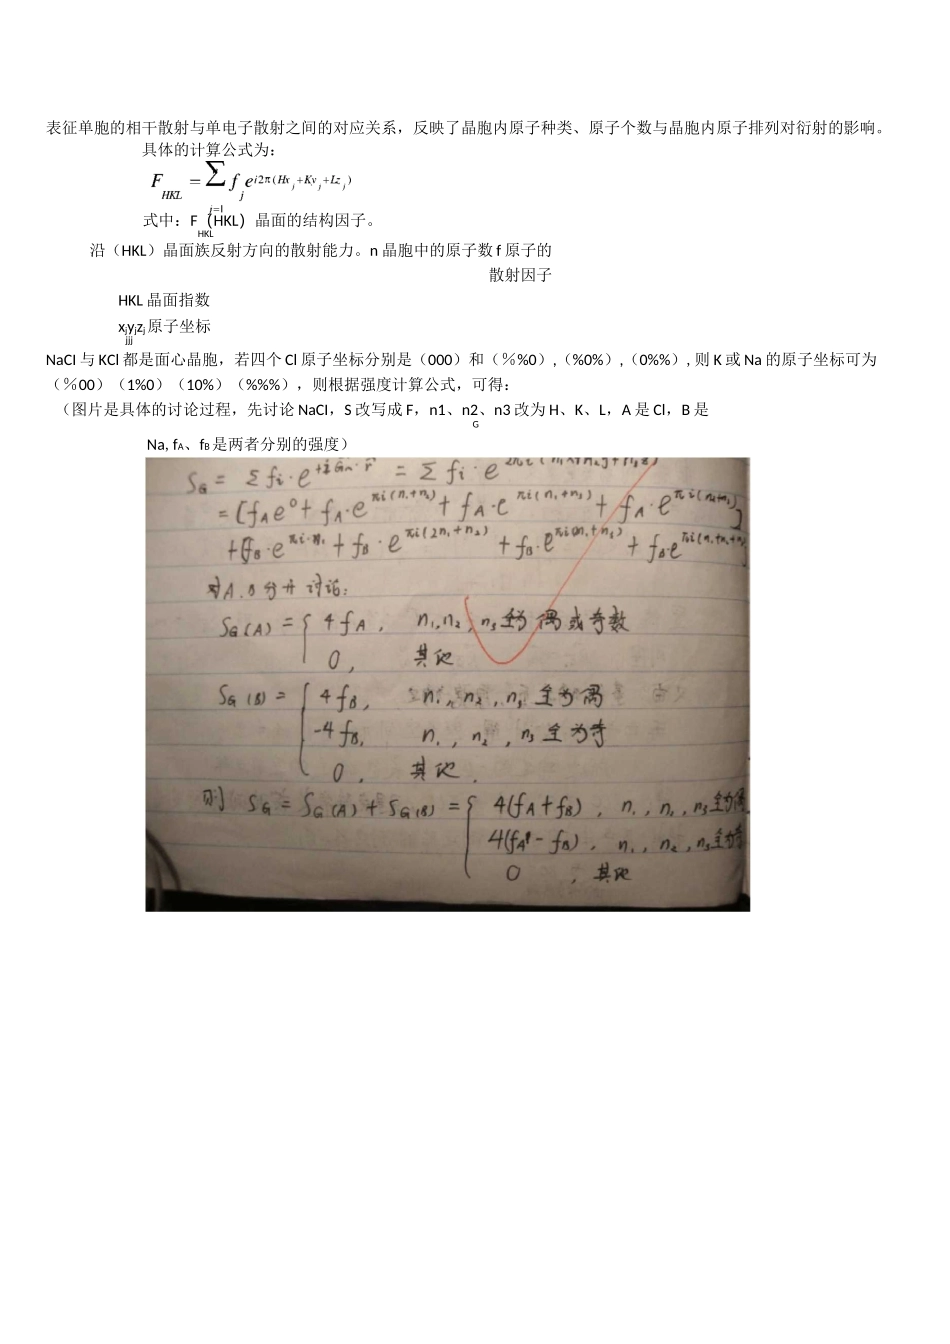 表征单胞的相干散射与单电子散射之间的对应关系，反映了晶胞内原子种类、原子个数与晶胞内原子排列对衍射的影响。
具体的计算公式为：
F_HKL = Σ_{j=1} f_j e^{i2π(Hx_j+Ky_j+Lz_j)}
式中：F（HKL）晶面的结构因子。
HKL
沿（HKL）晶面族反射方向的散射能力。n 晶胞中的原子数 f 原子的
散射因子
HKL 晶面指数
xjyjzj 原子坐标
jjj
NaCl 与 KCl 都是面心晶胞，若四个 Cl 原子坐标分别是（000）和（%%0）,（%0%）,（0%%）, 则 K 或 Na 的原子坐标可为
（%00）（1%0）（10%）（%%%），则根据强度计算公式，可得：
（图片是具体的讨论过程，先讨论 NaCl，S 改写成 F，n1、n2、n3 改为 H、K、L，A 是 Cl，B 是
G
Na, fA、fB 是两者分别的强度）
S_G = Σ fi·e = Σ fi·e
= [f_A e^0 + f_A·e^{πi(n₁+n₂)} + f_A·e^{πi(n₁+n₃)} + f_A·e^{πi(n₂+n₃)}]
+[f_B·e^{πi·n₁} + f_B·e^{πi(2n₁+n₂)} + f_B·e + f_B·e
对A.B分开讨论:
S_G(A) = { 4f_A, n₁,n₂,n₃全为偶或奇数
0, 其他
S_G(B) = { 4f_B, n₁,n₂,n₃全为偶
-4f_B, n₁,n₂,n₃全为奇
0, 其他.
则 S_G = S_G(A) + S_G(B) = { 4(f_A+f_B), n₁,n₂,n₃全为偶
4(f_A-f_B), n₁,n₂,n₃全为奇
0, 其他